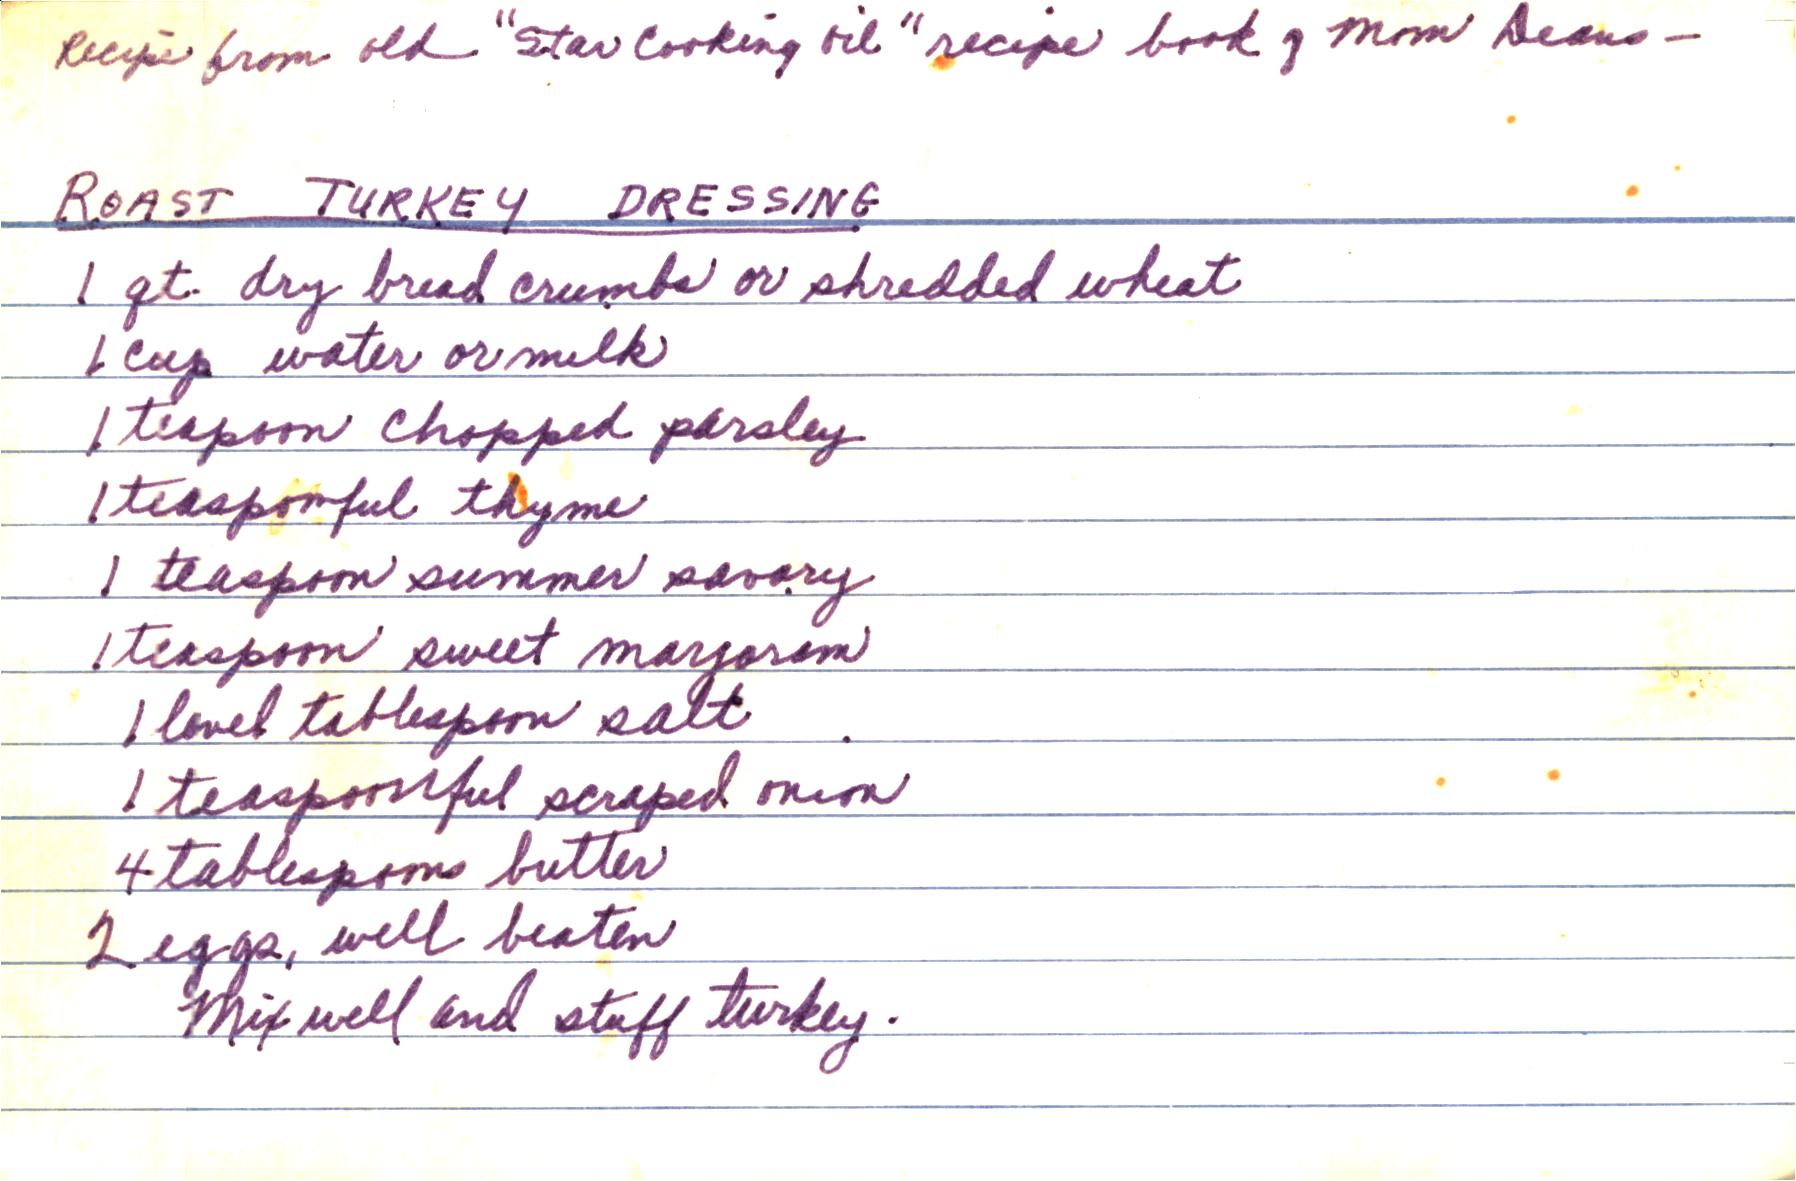 Recipe from old "Star Cooking Oil" recipe book of Mom Deans —
ROAST TURKEY DRESSING
1 qt. dry bread crumbs or shredded wheat
1 cup water or milk
1 teapoon chopped parsley
1 teaspoonful thyme
1 teaspoon summer savory
1 teaspoon sweet marjoram
1 level tablespoon salt
1 teaspoonful scraped onion
4 tablespoons butter
2 eggs, well beaten
Mix well and stuff turkey.